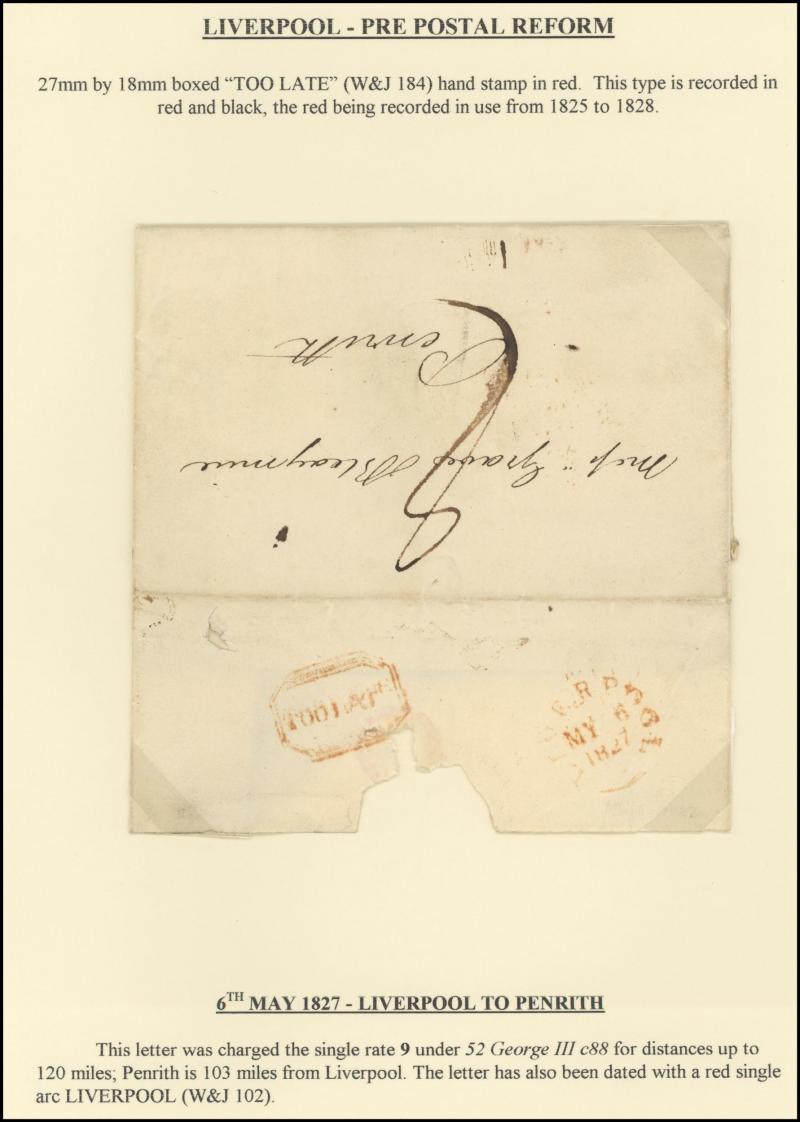 LIVERPOOL - PRE POSTAL REFORM
27mm by 18mm boxed “TOO LATE” (W&J 184) hand stamp in red. This type is recorded in
red and black, the red being recorded in use from 1825 to 1828.
Penrith
Bleaymire
9
TOO LATE
LIVERPOOL
MY 6
1827
6TH MAY 1827 - LIVERPOOL TO PENRITH
This letter was charged the single rate 9 under 52 George III c88 for distances up to
120 miles; Penrith is 103 miles from Liverpool. The letter has also been dated with a red single
arc LIVERPOOL (W&J 102).